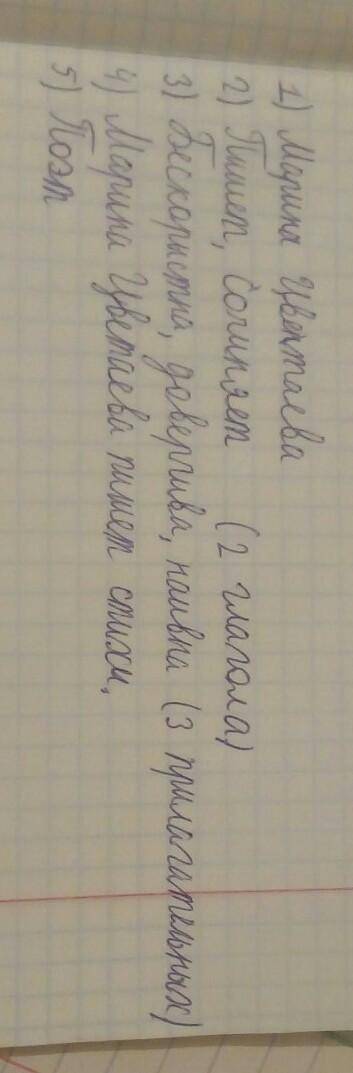 1) Марина Цветаева
2) Пишет, сочиняет (2 глагола)
3) Бескорыстна, доверчива, наивна (3 прилагательных)
4) Марина Цветаева пишет стихи,
5) Поэт